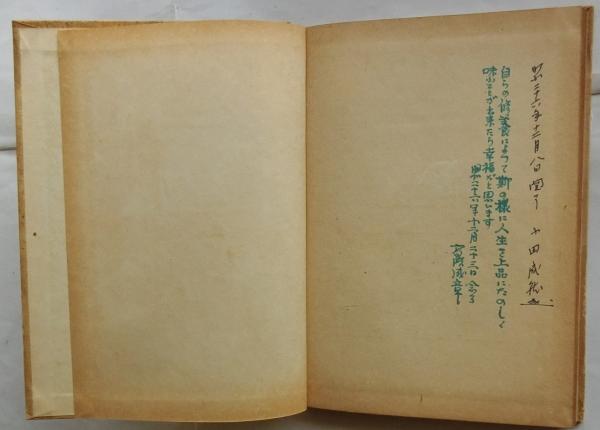 昭和二十六年十二月八日 閲了 小田成就
自らの修養によつて斯の様に人生を上品にたのしく
味ふことが出来たら幸福だと思います
昭和二十六年十二月二十三日